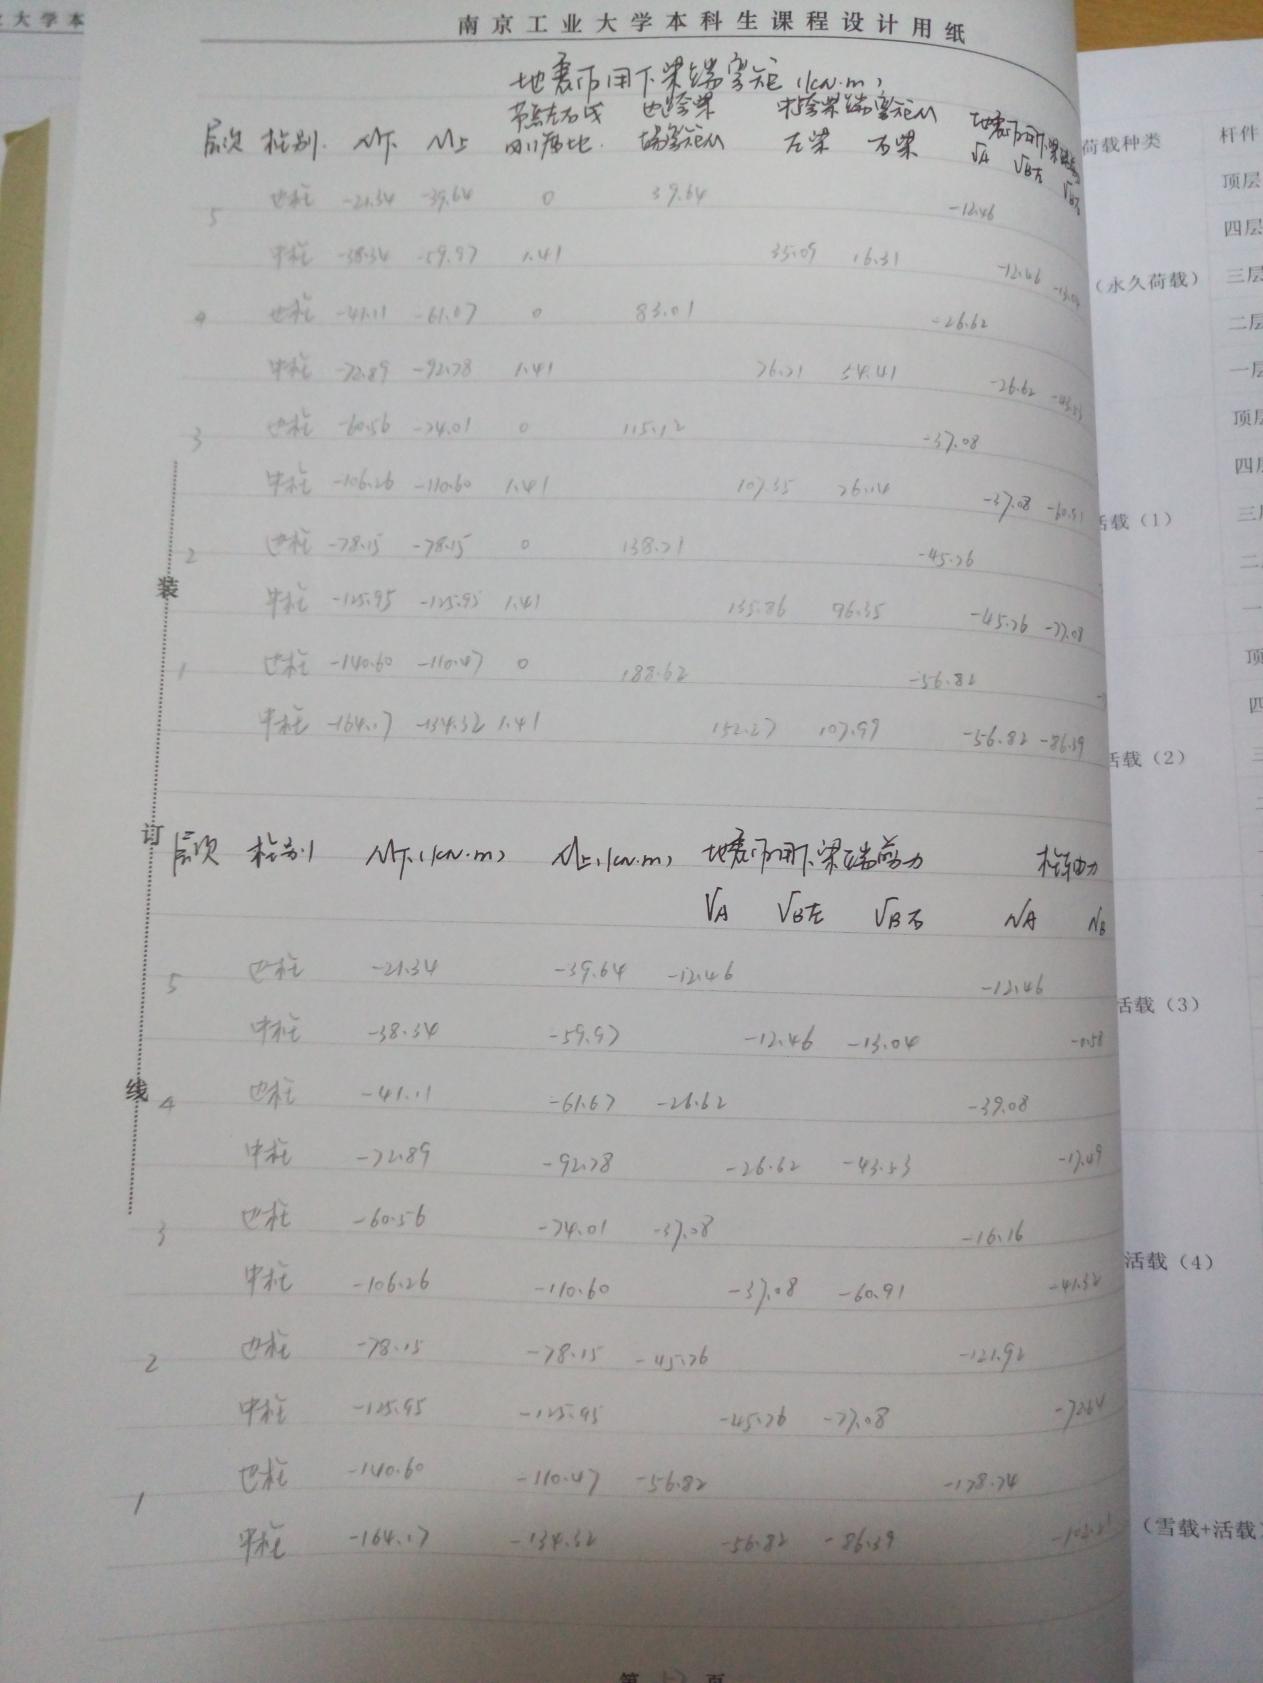 大学本
南京工业大学本科生课程设计用纸
地震作用下梁端弯矩 (kN·m)
层次 柱别 M下 M上 节点左右线刚度比 边跨梁端弯矩M 中跨梁端弯矩M 左梁 右梁 地震作用下梁 VA VB左 VB右
5 边柱 -21.34 -39.64 0 39.64 -12.46
中柱 -38.34 -59.97 1.41 35.09 -12.46 -13.04
4 边柱 -41.11 0 83.01 -26.62
中柱 -72.89 -92.78 1.41 54.41 -26.62
3 边柱 -60.56 -74.01 0 115.12 -37.08
中柱 -106.26 -110.60 1.41 107.35 76.14 -37.08
2 边柱 -78.15 -78.15 0 138.71 -45.76
中柱 -125.95 -125.95 1.41 135.86 96.35 -45.76 -77.08
1 边柱 -140.60 -110.47 0 188.62 -56.82
中柱 -164.17 -134.32 1.41 152.27 107.99 -56.82 -86.39
层次 柱别 M下(kN·m) M上(kN·m) 地震作用下梁端剪力 柱轴力
VA VB左 VB右 NA NB
5 边柱 -21.34 -39.64 -12.46 -12.46
中柱 -38.34 -59.97 -12.46 -13.04 -0.58
4 边柱 -41.11 -61.67 -26.62 -39.08
中柱 -72.89 -92.78 -26.62 -43.53 -17.49
3 边柱 -60.56 -74.01 -37.08 -16.16
中柱 -106.26 -110.60 -37.08 -60.91 -41.32
2 边柱 -78.15 -78.15 -45.76 -121.92
中柱 -125.95 -125.95 -45.76 -77.08 -72.64
1 边柱 -140.60 -110.47 -56.82 -178.74
中柱 -164.17 -134.32 -56.82 -86.39
第 页
装
订
线
荷载种类 杆件
顶层
四层
(永久荷载) 三层
二层
一层
顶层
四层
活载(1) 三层
二
一
顶
四
活载(2) 三
活载(3)
活载(4)
(雪载+活载)